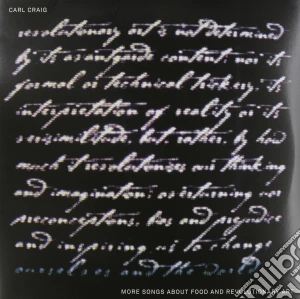 CARL CRAIG
revolutionary art is not determined
by its avantgarde content: nor its
formal or technical trickery. its
interpretation of reality or its
verisimilitude but, rather, by how
much it revolutionizes our thinking
and imagination: overturning our
preconceptions, bias and prejudice
and inspiring us to change
ourselves and the world
MORE SONGS ABOUT FOOD AND REVOLUTIONARY ART